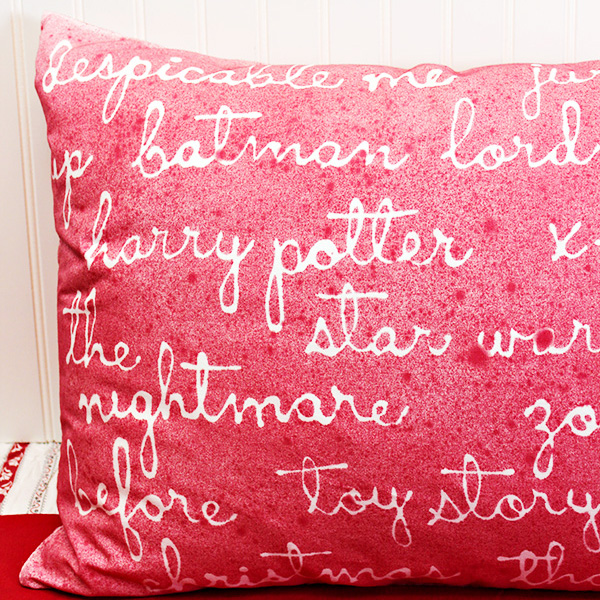 despicable me ju
up batman lord
harry potter x-
the star war
nightmare zo
before toy story
christmas th